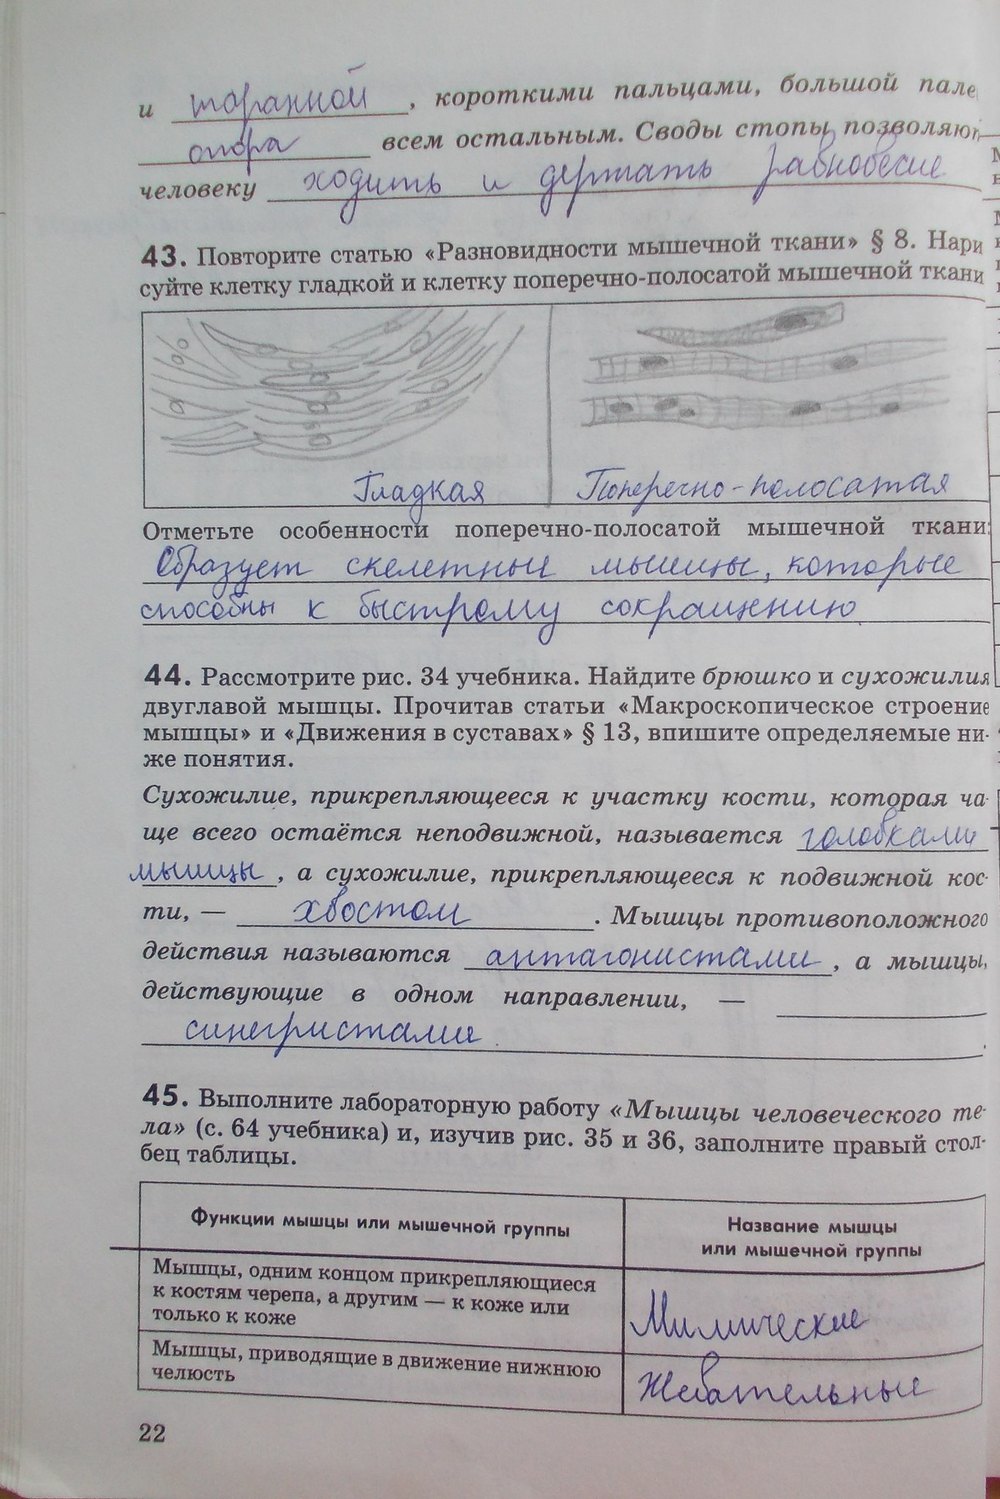 и таранной, короткими пальцами, большой пале
опора всем остальным. Своды стопы позволяют
человеку ходить и держать равновесие
43. Повторите статью «Разновидности мышечной ткани» § 8. Нари
суйте клетку гладкой и клетку поперечно-полосатой мышечной ткани
Гладкая Поперечно-полосатая
Отметьте особенности поперечно-полосатой мышечной ткани:
Образует скелетные мышцы, которые
способны к быстрому сокращению.
44. Рассмотрите рис. 34 учебника. Найдите брюшко и сухожилия
двуглавой мышцы. Прочитав статьи «Макроскопическое строение
мышцы» и «Движения в суставах» § 13, впишите определяемые ни-
же понятия.
Сухожилие, прикрепляющееся к участку кости, которая ча-
ще всего остаётся неподвижной, называется головками
мышцы, а сухожилие, прикрепляющееся к подвижной кос-
ти, — хвостом. Мышцы противоположного
действия называются антагонистами, а мышцы,
действующие в одном направлении, —
синегристами.
45. Выполните лабораторную работу «Мышцы человеческого те-
ла» (с. 64 учебника) и, изучив рис. 35 и 36, заполните правый стол-
бец таблицы.
Функции мышцы или мышечной группы
Название мышцы
или мышечной группы
Мышцы, одним концом прикрепляющиеся
к костям черепа, а другим — к коже или
только к коже
Мимические
Мышцы, приводящие в движение нижнюю
челюсть
Жевательные
22